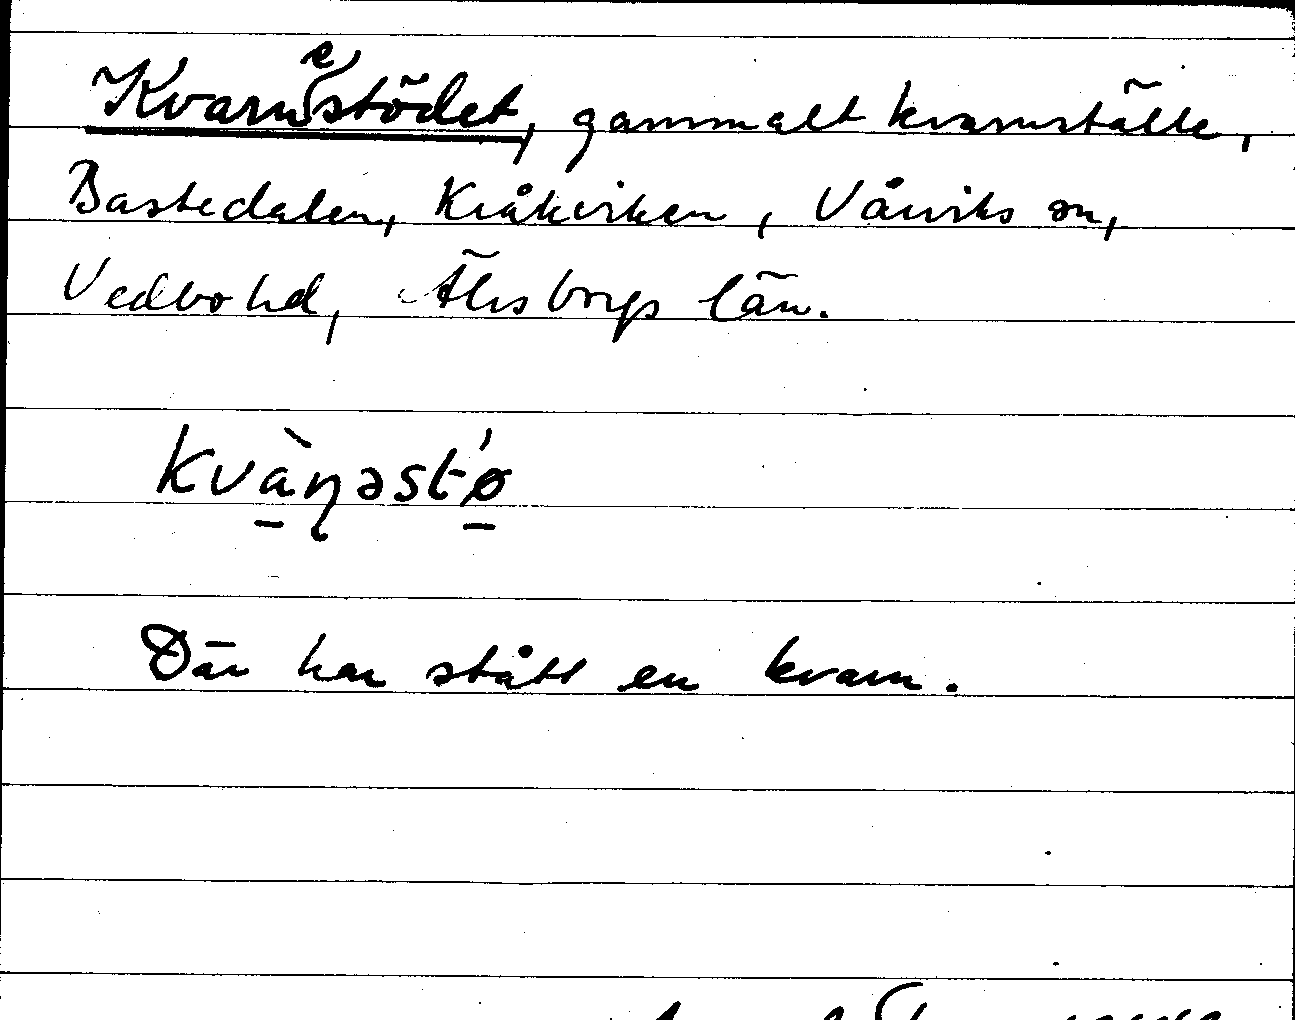 Kvarnestödet, gammalt kvarnställe,
Bastedalen, Kråkviken, Vårviks sn,
Vedbo hd, Älvsborgs län.
kvàɳəst'ø
Där har stått en kvarn.